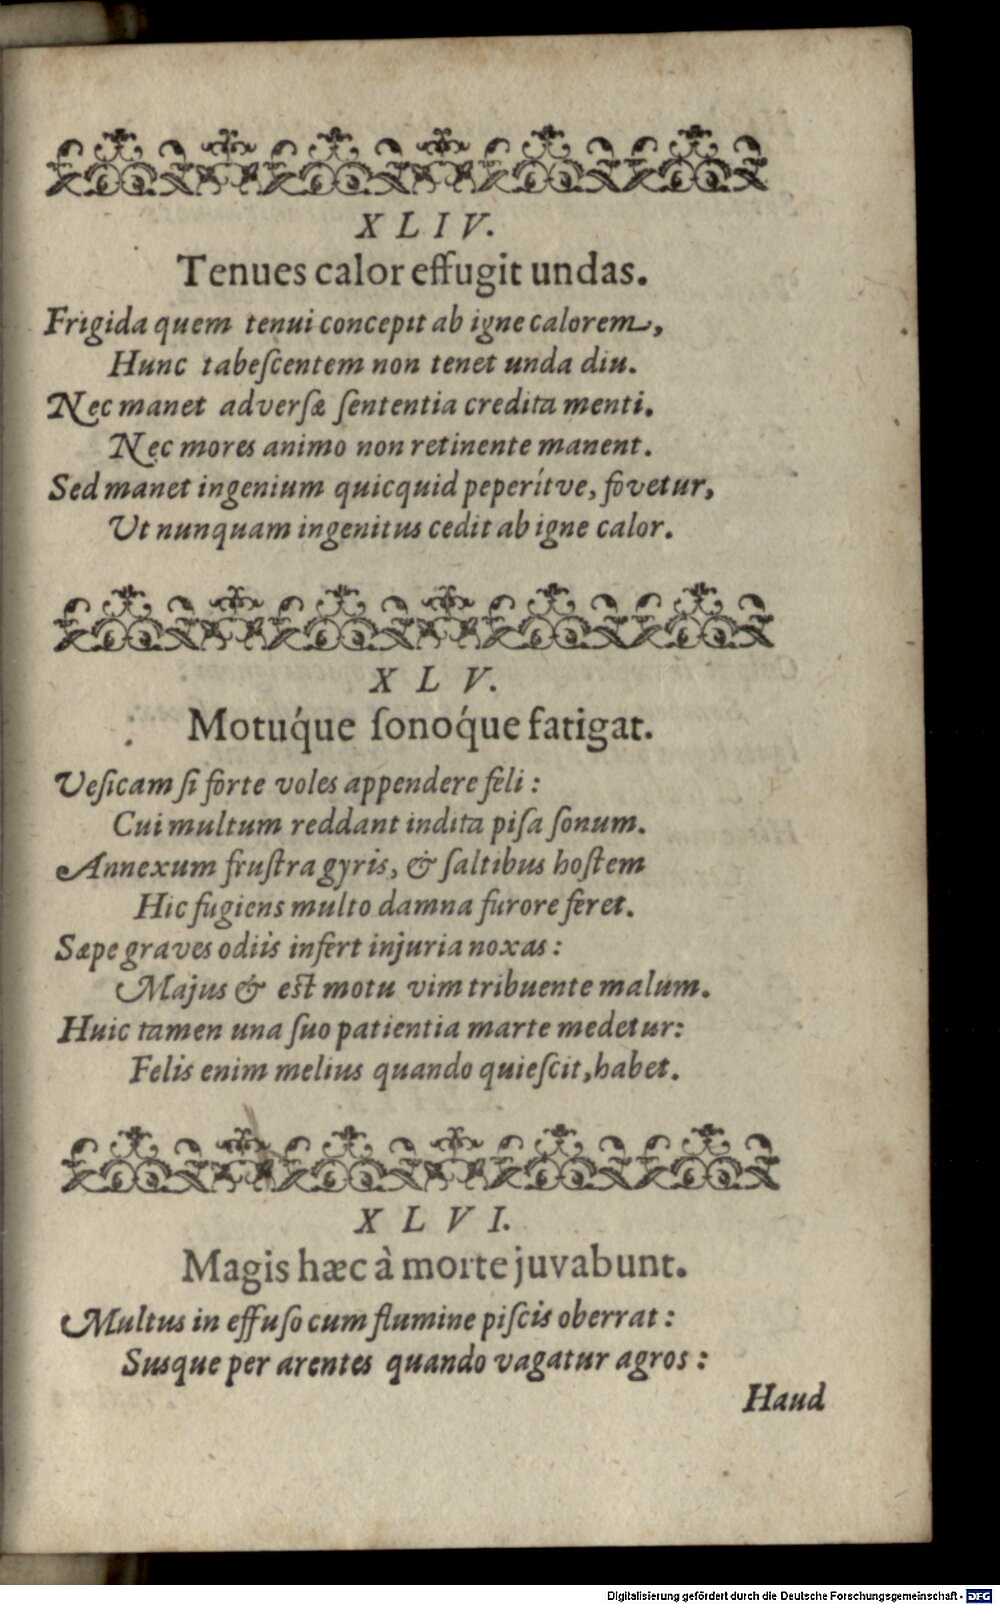 X L I V.
Tenues calor effugit undas.
Frigida quem tenui concepit ab igne calorem,
Hunc tabeſcentem non tenet unda diu.
Nec manet adverſæ ſententia credita menti.
Nec mores animo non retinente manent.
Sed manet ingenium quicquid peperítve, fovetur,
Ut nunquam ingenitus cedit ab igne calor.
X L V.
Motuq́ue ſonoq́ue fatigat.
Veſicam ſi forte voles appendere feli:
Cui multum reddant indita piſa ſonum.
Annexum fruſtra gyris, & ſaltibus hoſtem
Hic fugiens multo damna furore feret.
Sæpe graves odiis infert injuria noxas:
Majus & eſt motu vim tribuente malum.
Huic tamen una ſuo patientia marte medetur:
Felis enim melius quando quieſcit, habet.
X L V I.
Magis hæc à morte juvabunt.
Multus in effuſo cum flumine piſcis oberrat:
Susque per arentes quando vagatur agros:
Haud
Digitalisierung gefördert durch die Deutsche Forschungsgemeinschaft - DFG